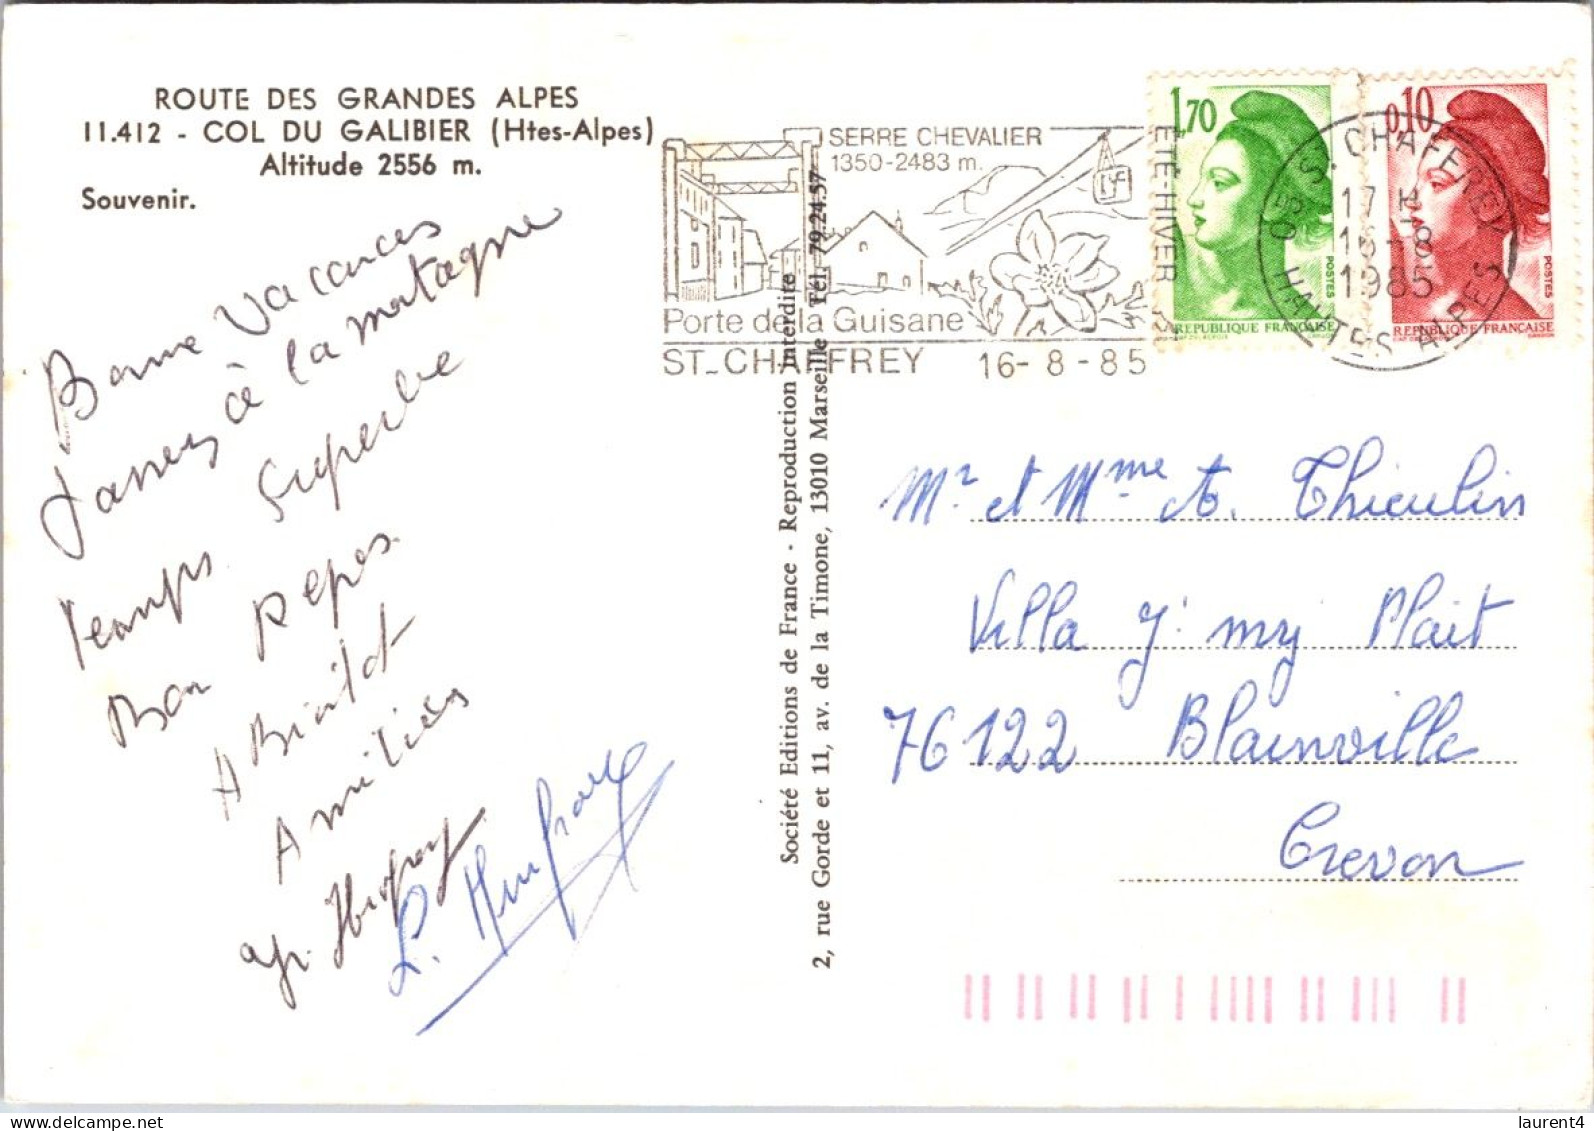 ROUTE DES GRANDES ALPES
11.412 - COL DU GALIBIER (Htes-Alpes)
Altitude 2556 m.
Souvenir.
Bonne Vacances
à la montagne
Temps Superbe
Bon Repos
A Bientot
Amitiés
SERRE CHEVALIER
1350-2483 m.
ETE-HIVER
Porte de la Guisane
ST-CHAFFREY 16-8-85
1,70
POSTES
REPUBLIQUE FRANÇAISE
0,10
POSTES
REPUBLIQUE FRANÇAISE
ST. CHAFFREY
17 H
16-8
1985
05 HAUTES ALPES
Société Editions de France - Reproduction Interdite
2, rue Gorde et 11, av. de la Timone, 13010 Marseille Tél. 79.24.57
Mr et Mme A. Thieulin
Villa J' my Plait
76122 Blainville
Crevon
laurent4